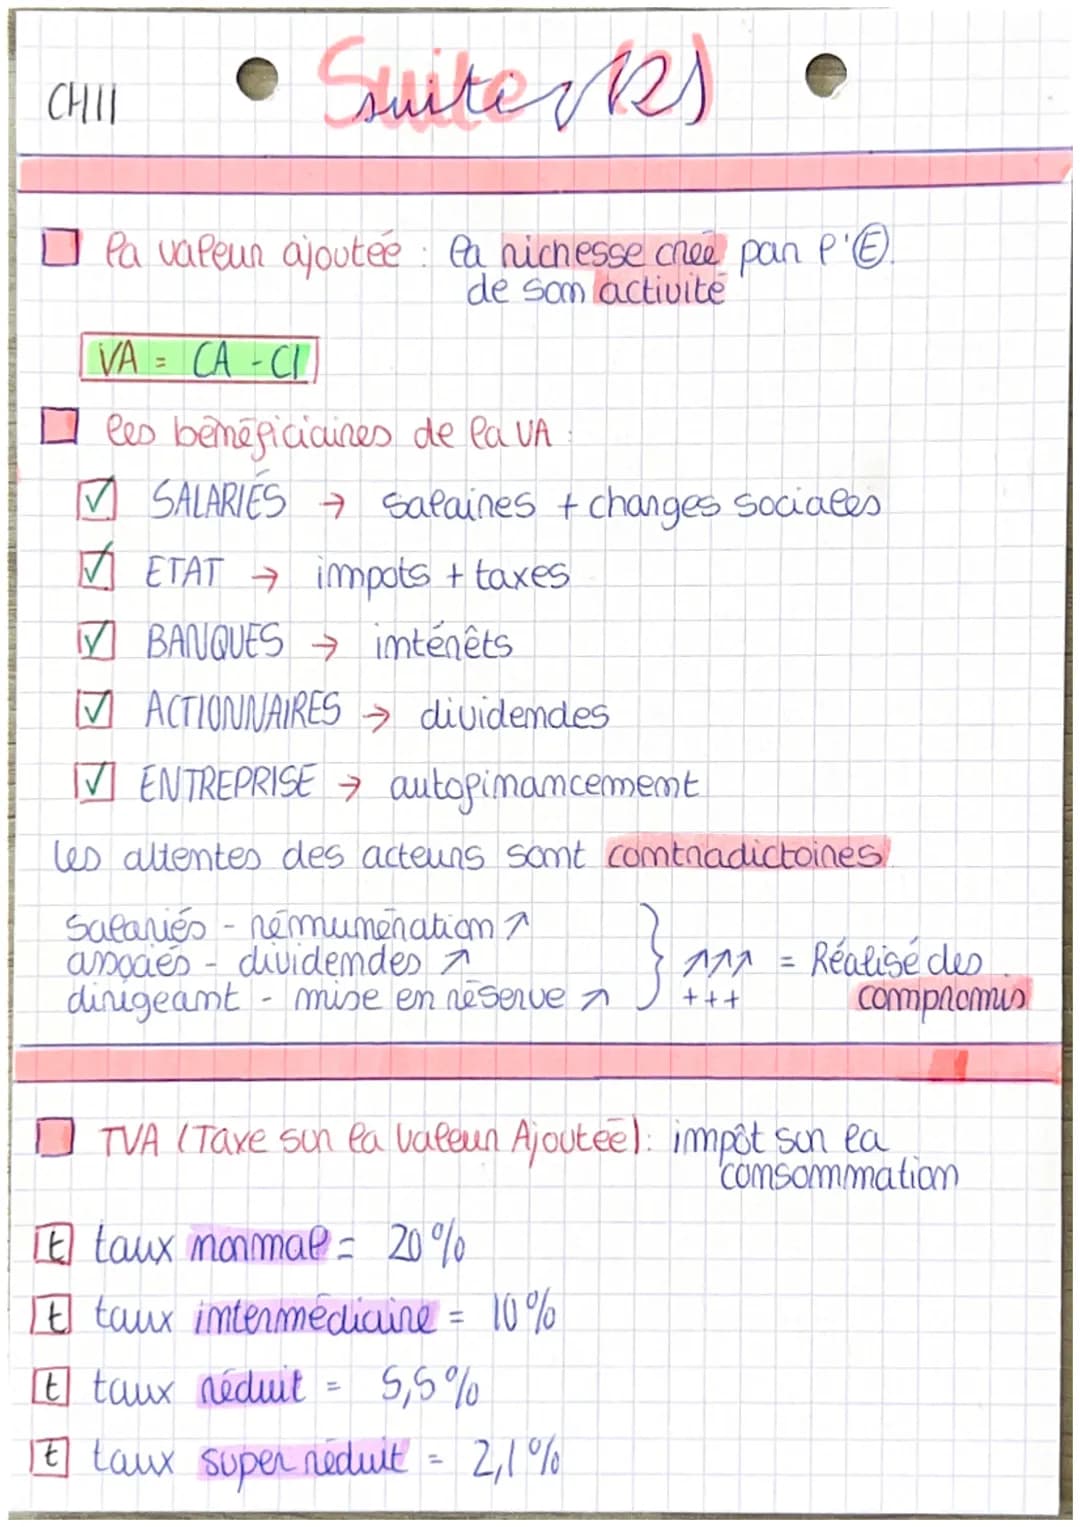 CH11
Suite (2)
la valeur ajoutée : la richesse créé par l'Ⓔ.
de son activité
VA = CA - CI
les bénéficiaires de la VA :
SALARIÉS → salaires + charges sociales
ETAT → impots + taxes
BANQUES → intérêts
ACTIONNAIRES → dividendes
ENTREPRISE → autofinancement
les attentes des acteurs sont contradictoires
salariés - rémunération ↗
associés - dividendes ↗
dirigeant - mise en réserve ↗
} ↗↗↗ = Réalisé des
+++ compromis
TVA (Taxe sur la valeur Ajoutée) : impôt sur la
consommation
t taux normal = 20%
t taux intermédiaire = 10%
t taux réduit = 5,5%
t taux super réduit = 2,1%